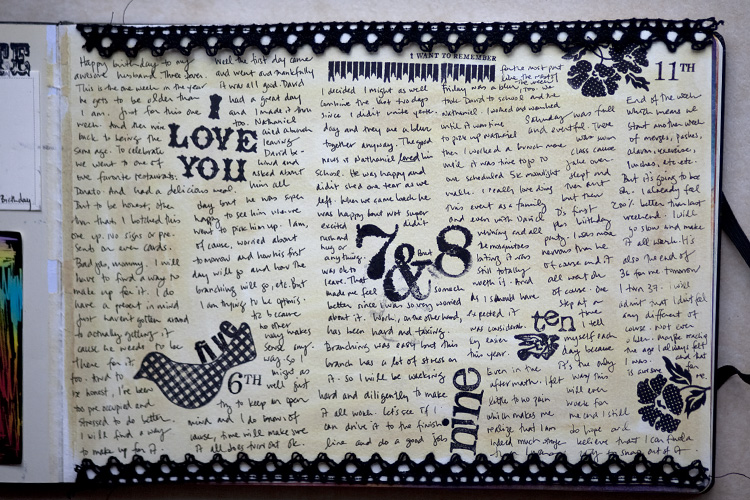 PE
Birthday
Happy birthday to my
awesome husband. Three Seven.
This is the one week in the year
he gets to be older than
I am. Just for this one
week. And then were
back to being the
same age. To celebrate
we went to one of
our favorite restaurants.
Donato. And had a delicious meal.
But to be honest, other
than that I botched this
one up. No signs or pre-
sents or even cards.
Bad job, mommy. I will
have to find a way to
make up for it. I do
have a present in mind
just haven't gotten around
to actually getting it
cause he needs to be
there for it
too. And to
be honest, I've been
too preoccupied and
stressed to do better.
I will find a way
to make up for it.
five
Well the first day came
and went and thankfully
it was all good. David
had a great day
and I made it thru
too. Nathaniel
cried a bunch
leaving
David be-
hind and
asked about
him all
I
LOVE
YOU
day but he was super
happy to see him when we
went to pick him up. I am,
of cause, worried about
tomorrow and how his first
day will go and how the
branching will go, etc. But
I am trying to be optimis-
tic because
no other
way makes
sense any-
way. So
might as
well just
try to keep an open
mind and I do know of
cause, time will make sure
it all does turn out ok.
6TH
I WANT TO REMEMBER
I decided I might as well
combine the last two days
since I didn't write yester-
day and they are a blur
together anyway. The good
news is Nathaniel loved his
school. He was happy and
didn't shed one tear as we
left. When we came back he
was happy but not super
excited
didn't
rush and
hug or
anything.
But
was ok to
leave. That
made me feel
so much
better since I was so very worried
about it. Work, on the other hand,
has been hard and taxing.
Branching was easy but this
branch has a lot of stress on
it. So I will be working
hard and diligently to make
it all work. Let's see if I
can drive it to the finish
line and do a good job
7&8
Friday was a blur, too. We
took David to school and he
Nathaniel. I worked and worked
until it was time
to pick up Nathaniel
then I worked a bunch more
until it was time to go to
one scheduled 5k moonlight
walk. I really love doing
this event as a family
and even with David
whining and all
the mosquitoes
biting it was
still totally
worth it. And
nine
for the most part
Saturday was full
and eventful. There
was swim
class cause
Jake over-
slept and
then art
D's first
plus birthday
party. I was more
nervous than he
of cause and it
all went ok
of cause. One
step at a
time
I tell
myself each
day because
it's the only
way this
will even
work for
me and I still
do hope and
believe that I can find a
way to snap out of it.
As I should have
expected it
was consider
by easier
this year.
Even in the
aftermath. I felt
little to no pain
which makes me
realize that I am
indeed much stronger
ten
11TH
End of the week
which means we
start another week
of merges, pushes,
alarms, exercises,
lunches, etc. etc.
But it's going to be
ok. I already feel
200% better than last
weekend. I will
go slow and make
it all work. It's
also the end of
36 for me tomorrow
I turn 37. I will
admit that I don't feel
any different of
course. Not even
older. Maybe maybe
the age I always felt
I was.
and that
is awesome
for
me.